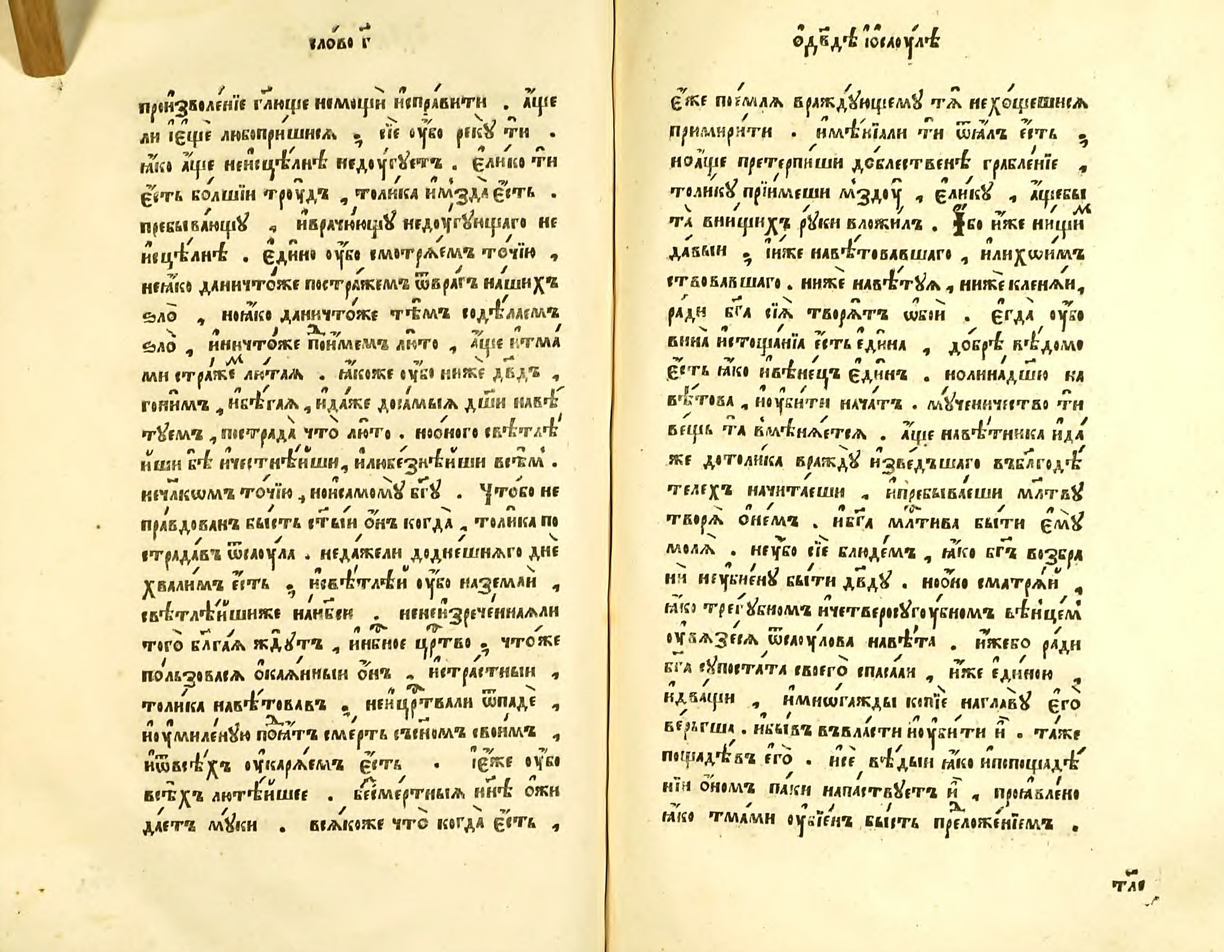 сло́во г҃
произволе́нїе гл҃юще немощѝ и҆спра́вити . а҆́ще
ли і҆е҆щѐ любопри́шися , сїѐ оу҆̀бо рекꙋ̀ ти .
ꙗ҆́ко а҆́ще неи҆сцѣ́лнѣ недоу́гꙋетъ . е҆ли́ко ти
е҆́сть бо́лшїи трꙋ́дъ , толи́ка и҆мзда̀ е҆́сть .
пребыва́ющꙋ , и҆врачꙋ́ющꙋ недоу́гꙋющаго не
и҆сцѣ́лнѣ . е҆ди́но оу҆́бо смотрѧ́емъ то́чїю ,
неꙗ҆́ко даничто́же постра́жемъ ѿвра́гъ на́шихъ
ѕло̀ , ноꙗ҆́ко даничто́же тѣ́мъ содѣ́лаемъ
ѕло̀ , и҆ничто́же пои́мемъ лю́то , а҆́ще и҆тма́
ми стра́жемъ лю́таѧ . ꙗ҆́коже оу҆́бо нижѐ дв҃дъ ,
гони́мъ , и҆бѣ́гаѧ , и҆да́же доса́мыѧ дш҃и навѣ́
тꙋемъ , пострада̀ что̀ лю́то . ноѻ҆́ного свѣтлѣ́
йши бѣ̀ и҆честнѣ́йши , и҆любе́знѣйши всѣ́мъ .
нечл҃кѡмъ то́чїю , нои҆самомꙋ̀ бг҃ꙋ . Что́бо не
пра́вдованъ бы́сть ст҃ы́и ѻ҆́нъ когда̀ , толи́ка по
страда́въ ѿсаоу́ла . недажели до дне́шняго днѐ
хва́лимъ е҆́сть , и҆свѣтлѣ́й оу҆́бо наземлѝ ,
свѣтлѣ́йшиже нанб҃си . ненеи҆зрече́ннаѧли
того̀ бл҃га́ѧ жд́ꙋтъ , и҆нб҃ное црⷭ҇тво , что́же
по́льзовасѧ ѻ҆каѧ́нныи ѻ҆́нъ , и҆стра́стныи ,
толи́ка навѣ́товавъ , неи҆црⷭ҇твали ѿпадѐ ,
и҆оу҆миле́нꙋю поѧ́тъ сме́рть съсы́номъ свои́мъ ,
и҆ѿвсѣ́хъ оу҆карѧ́емъ е҆́сть . і҆е҆́же оу҆́бо
всѣ́хъ лютѣ́йшее . бесме́ртныѧ нн҃ѣ ѻ҆жи
да́етъ мꙋ́ки . всѧ́коже что̀ когда̀ е҆́сть ,
ѻ҆дв҃дѣ і҆ѻ҆саоу́лѣ
е҆́же пое́млѧ враждꙋ́ющемꙋ тѧ̀ нехо́щешисѧ
примири́ти . и҆мѣ́нїѧли ти ѿѧ́лъ е҆́сть ,
ноа҆́ще претерпи́ши до́блественѣ грабле́нїе ,
толи́кꙋ прїи́меши мздоу̀ , е҆ли́кꙋ , а҆́щебы
та̀ вни́щихъ рꙋ́ки вложи́лъ . И҆́бо и҆́же ни́щимъ
да́выи , и҆и҆́же навѣ́товавшаго , и҆лихѡи́мъ
ствовавшаго . нижѐ навѣ́тꙋѧ , нижѐ кленѧ́и ,
ра́ди бг҃а сїѧ̀ творѧ́тъ ѡ҆боѝ . е҆гда̀ оу҆́бо
вина̀ и҆стоща́нїа е҆́сть е҆ди́на , до́брѣ вѣ́домо
е҆́сть ꙗ҆́ко и҆вѣне́цъ е҆ди́нъ . нолинадшю на
вѣ́това , и҆оу҆би́ти нача́тъ . мꙋ́ченичество ти
ве́щь та̀ вмѣнѧ́етсѧ . а҆́ще навѣ́тника и҆да́
же дотоли́ка враждꙋ̀ и҆зве́дъшаго въбл҃годѣ́
телехъ начита́еши , и҆пребыва́еши мл҃твꙋ
творѧ̀ ѻ҆не́мъ . и҆бг҃а млⷭ҇тива бы́ти е҆мꙋ̀
молѧ̀ . неꙋ҆́бо сїѐ блюде́мъ , ꙗ҆́ко бг҃ъ возбра
нѝ неꙋ҆бие́нꙋ бы́ти дв҃дꙋ . ноѻ҆́но сматрѧ́й ,
ꙗ҆́ко трегꙋ́бномъ и҆четверосꙋгоу́бномъ вѣнце́мъ
оу҆вѧзе́сѧ ѿсаоу́лова навѣ́та . и҆́жебо ра́ди
бг҃а сꙋпоста́та своего̀ спаса́ѧи , и҆́же е҆ди́ною ,
и҆два́щи , и҆мно́гажды копїѐ наглавꙋ̀ е҆го̀
ве́рьгша . и҆бы́въ въвла́сти и҆оу҆би́ти и҆̀ . та́же
пощадѣ́въ е҆го̀ . и҆сѐ вѣ́дыи ꙗ҆́ко и҆попощадѣ́
нїи ѻ҆́номъ па́ки напа́ствꙋетъ и҆̀ , проꙗ҆́влено
ꙗ҆́ко тма́ми оу҆бїе́нъ бы́сть предложе́нїемъ .
тѣ́ло